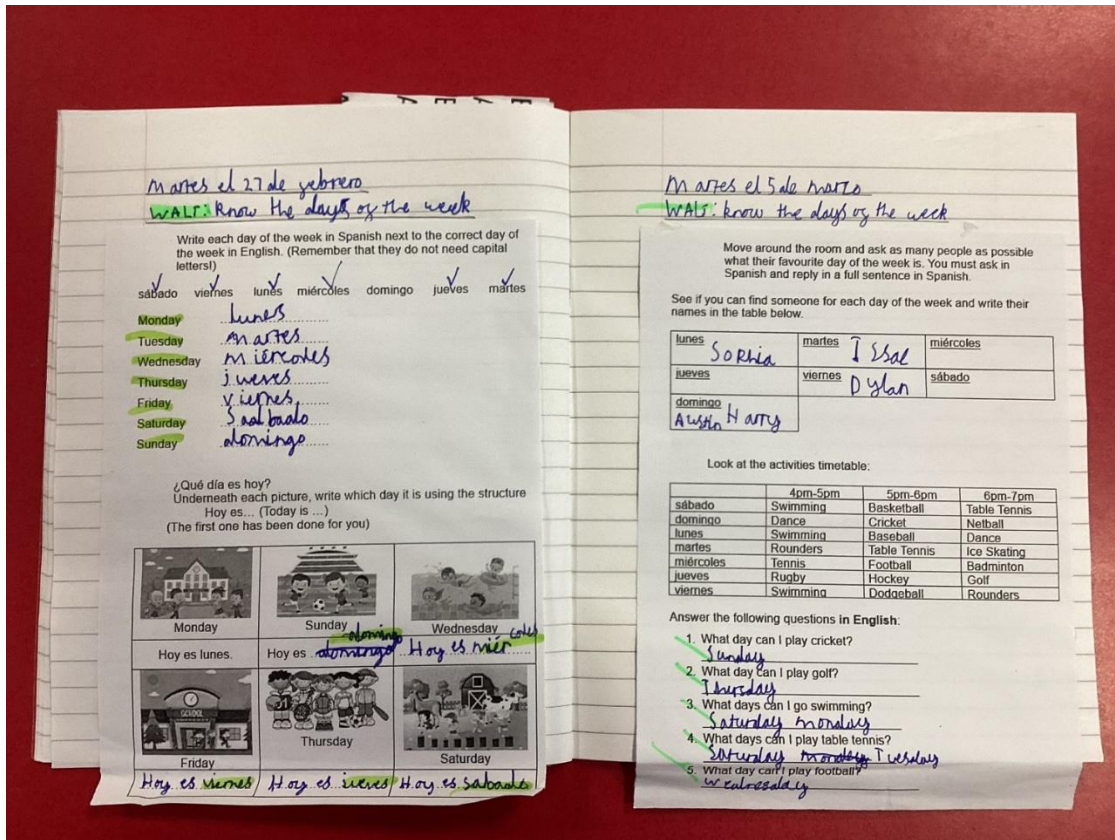 Martes el 27 de febrero
WALT: Know the days of the week
Write each day of the week in Spanish next to the correct day of
the week in English. (Remember that they do not need capital
letters!)
sábado viernes lunes miércoles domingo jueves martes
Monday lunes
Tuesday martes
Wednesday miércoles
Thursday jueves
Friday viernes
Saturday
Sunday domingo
¿Qué día es hoy?
Underneath each picture, write which day it is using the structure
Hoy es... (Today is ...)
(The first one has been done for you)
Monday Sunday Wednesday
domingo
Hoy es lunes. Hoy es domingo Hoy es miércoles
SCHOOL
Friday Thursday Saturday
Hoy es viernes Hoy es jueves Hoy es sabado
Martes el 5 de marzo
WALT: know the days of the week
Move around the room and ask as many people as possible
what their favourite day of the week is. You must ask in
Spanish and reply in a full sentence in Spanish.
See if you can find someone for each day of the week and write their
names in the table below.
lunes Sophia martes Issac miércoles
jueves viernes Dylan sábado
domingo
Austin Harry
Look at the activities timetable:
4pm-5pm 5pm-6pm 6pm-7pm
sábado Swimming Basketball Table Tennis
domingo Dance Cricket Netball
lunes Swimming Baseball Dance
martes Rounders Table Tennis Ice Skating
miércoles Tennis Football Badminton
jueves Rugby Hockey Golf
viernes Swimming Dodgeball Rounders
Answer the following questions in English:
1. What day can I play cricket?
Sunday
2. What day can I play golf?
Thursday
3. What days can I go swimming?
Saturday monday
4. What days can I play table tennis?
Saturday monday Tuesday
5. What day can I play football?
Wednesday